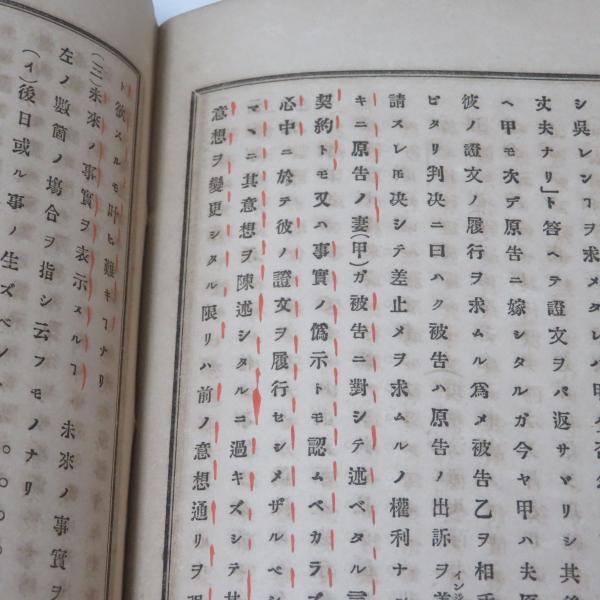 シ呉レンヿヲ求メタレハ甲
丈夫ナリ」ト答ヘテ證文ヲバ返サヾリシ其
ヘ甲モ次デ原告ニ嫁シタルガ今ヤ甲ハ夫原
彼ノ證文ノ履行ヲ求ムル爲メ被告乙ヲ相手
ピタリ判决ニ曰ハク被告ハ原告ノ出訴ヲ
請スレ𪜈决シテ差止メヲ求ムルノ權利ナ
キニ原告ノ妻(甲)ガ被告ニ對シテ述ベタル
契約トモ又ハ事實ノ僞示トモ認ムベカラズ
心中ニ於テ彼ノ證文ヲ履行セシメザルベシ
ニ其意想ヲ陳述シタルニ過キズシテ
意想ヲ變更シタル限リハ前ノ意想通リヲ
ト彼スルモ叶ヒ難キヿナリ
(三)未來ノ事實ヲ表示スルヿ 未來ノ事實ヲ
左ノ數箇ノ塲合ヲ指シ云フモノナリ
(イ)後日或ル事ノ生ズベシ